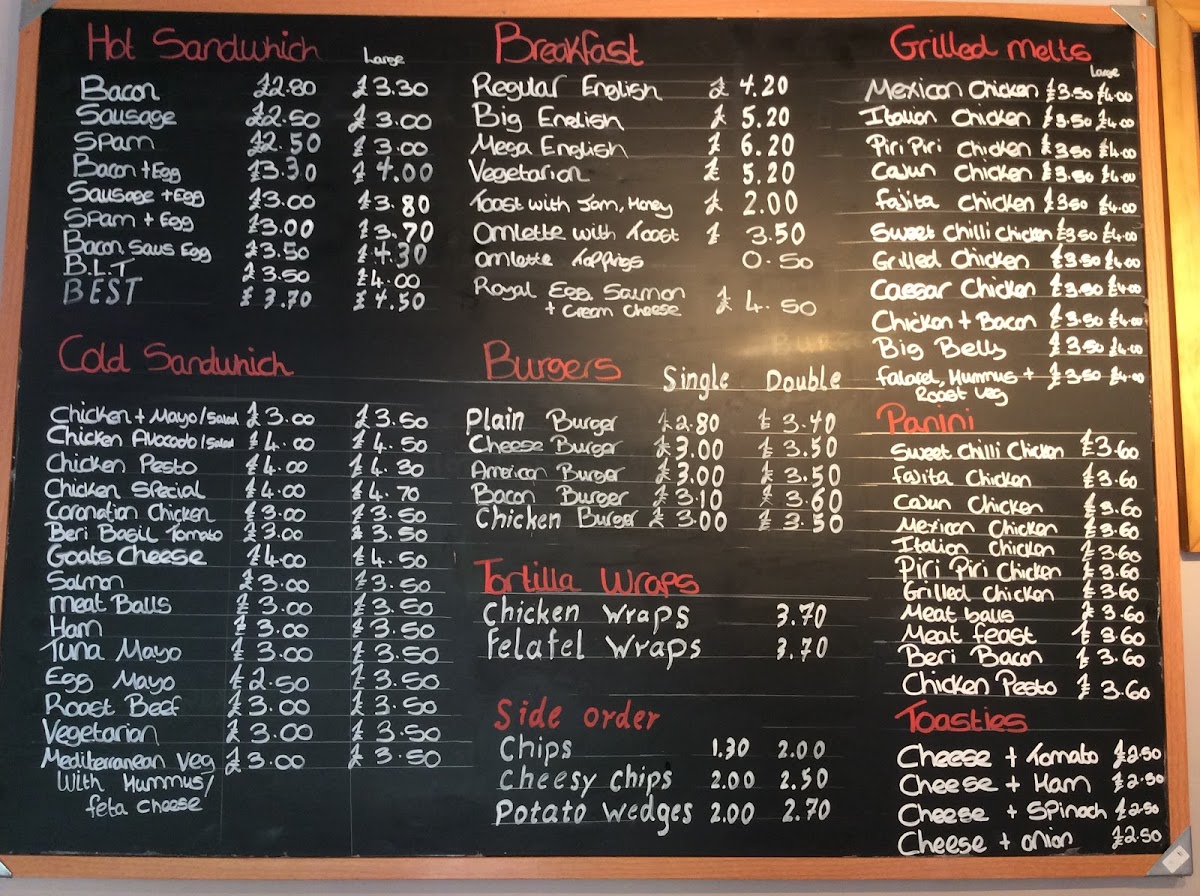 Hot Sandwhich
Large
Bacon £2.80 £3.30
Sausage £2.50 £3.00
Spam £2.50 £3.00
Bacon + Egg £3.30 £4.00
Sausage + Egg £3.00 £3.80
Spam + Egg £3.00 £3.70
Bacon Saus Egg £3.50 £4.30
B.L.T £3.50 £4.00
BEST £3.70 £4.50
Cold Sandwhich
Chicken + Mayo/Salad £3.00 £3.50
Chicken Avocado/Salad £4.00 £4.50
Chicken Pesto £4.00 £4.30
Chicken Special £4.00 £4.70
Coronation Chicken £3.00 £3.50
Beri Basil Tomato £3.00 £3.50
Goats Cheese £4.00 £4.50
Salmon £3.00 £3.50
Meat Balls £3.00 £3.50
Ham £3.00 £3.50
Tuna Mayo £3.00 £3.50
Egg Mayo £2.50 £3.50
Roast Beef £3.00 £3.50
Vegetarian £3.00 £3.50
Mediterranean Veg £3.00 £3.50
With Hummus/
feta cheese
Breakfast
Regular English £4.20
Big English £5.20
Mega English £6.20
Vegetarian £5.20
Toast with Jam, Honey £2.00
Omlette with Toast £3.50
Omlette Toppings 0.50
Royal Egg, Salmon
+ Cream Cheese £4.50
Burgers
Single Double
Plain Burger £2.80 £3.40
Cheese Burger £3.00 £3.50
American Burger £3.00 £3.50
Bacon Burger £3.10 £3.60
Chicken Burger £3.00 £3.50
Tortilla Wraps
Chicken Wraps 3.70
Felafel Wraps 3.70
Side order
Chips 1.30 2.00
Cheesy chips 2.00 2.50
Potato Wedges 2.00 2.70
Grilled melts
Large
Mexican Chicken £3.50 £4.00
Italian Chicken £3.50 £4.00
Piri Piri Chicken £3.50 £4.00
Cajun Chicken £3.50 £4.00
Fajita Chicken £3.50 £4.00
Sweet Chilli Chicken £3.50 £4.00
Grilled Chicken £3.50 £4.00
Caesar Chicken £3.50 £4.00
Chicken + Bacon £3.50 £4.00
Big Belly £3.50 £4.00
Falafel, Hummus + £3.50 £4.00
Roast Veg
Panini
Sweet Chilli Chicken £3.60
Fajita Chicken £3.60
Cajun Chicken £3.60
Mexican Chicken £3.60
Italian Chicken £3.60
Piri Piri Chicken £3.60
Grilled Chicken £3.60
Meat balls £3.60
Meat feast £3.60
Beri Bacon £3.60
Chicken Pesto £3.60
Toasties
Cheese + Tomato £2.50
Cheese + Ham £2.50
Cheese + Spinach £2.50
Cheese + onion £2.50